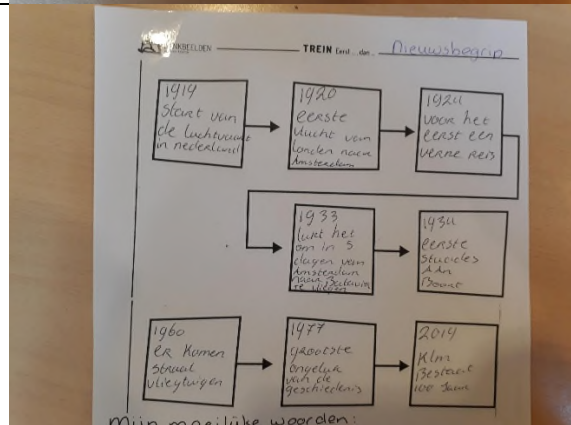 DENKBEELDEN TREIN Eerst...dan... Nieuwsbegrip
1919
start van
de luchtvaart
in nederland
1920
eerste
vlucht van
londen naar
Amsterdam
1924
voor het
eerst een
verre reis
1933
lukt het
om in 5
dagen van
Amsterdam
naar Batavia
te vliegen
1934
eerste
stuardes
AAn
Boort
1960
er komen
straal
vliegtuigen
1977
grootste
ongeluk
van de
geschiedenis
2019
Klm
Bestaat
100 Jaar
Mijn moeilijke woorden: